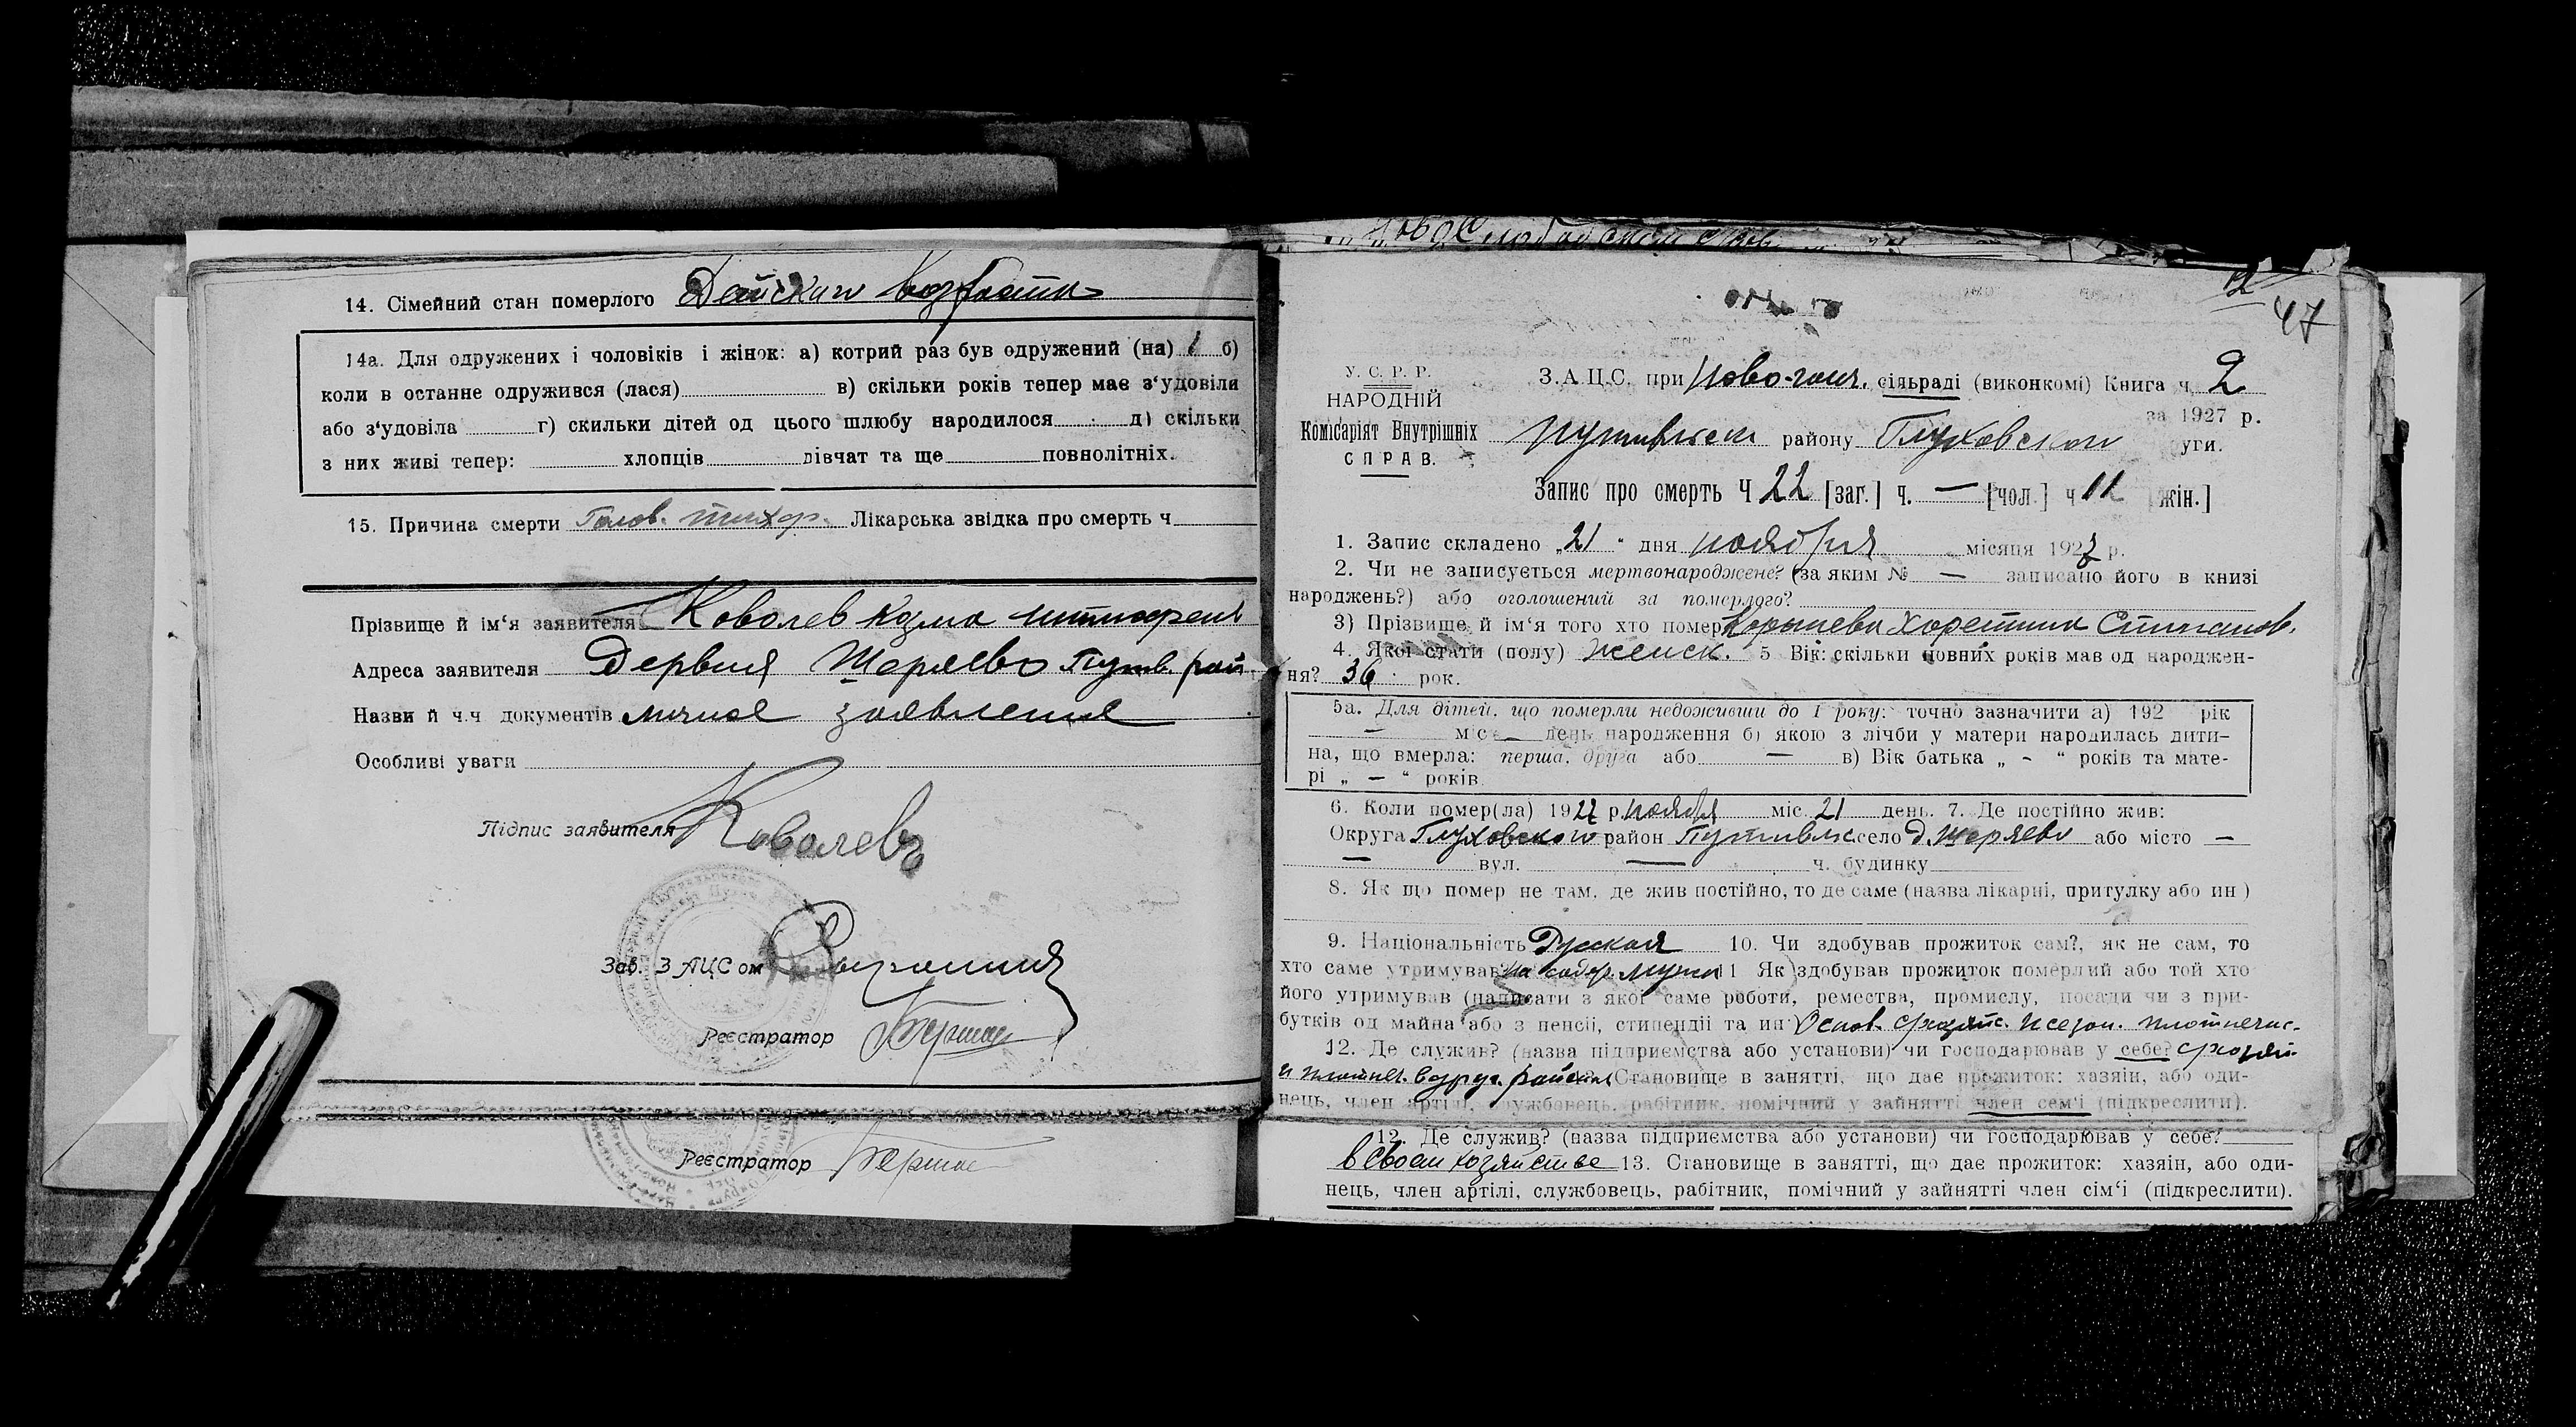 14. Сімейний стан померлого Детскаго возраста
14а. Для одружених і чоловіків і жінок: а) котрий раз був одружений (на) 1 б)
коли в останне одружився (лася) в) скільки років тепер має з'удовіли
або з'удовіла г) скильки дітей од цього шлюбу народилося д) скільки
з них живі тепер: хлопців дівчат та ще повнолітніх.
15. Причина смерти Лікарська звідка про смерть ч
Прізвище й ім'я заявителя Ковалев Козма
Адреса заявителя Дервня Шеряево Путив. рай
Назви й ч.ч документів личное заявление
Особливі уваги
Підпис заявителя Ковалевъ
Зав. ЗАЦСом
Реєстратор
Реєстратор
12
47
У. С. Р. Р.
НАРОДНІЙ
Комісаріят Внутрішніх
СПРАВ.
З.А.Ц.С. при Ново-гонч. сільраді (виконкомі) Книга ч. 2
за 1927 р.
Путивльск району Глуховской уги.
Запис про смерть Ч 22 [заг.] ч. — [чол.] ч 11 [жін.]
1. Запис складено „21" дня ноября місяця 1927 р.
2. Чи не записується мертвонароджене? (за яким № — записано його в книзі
народжень?) або оголошений за померлого?
3) Прізвище й ім'я того хто помер Степанов.
4. Якої стати (полу) женск. 5 Вік: скільки повних років мав од народжен-
ня? 36 рок.
5а. Для дітей, що померли недоживши до 1 року: точно зазначити а) 192 рік
— міс — день народження б) якою з лічби у матери народилась дити-
на, що вмерла: перша, друга або — в) Вік батька „ - " років та мате-
рі „ — " років
6. Коли помер(ла) 1927 р. ноября міс. 21 день. 7. Де постійно жив:
Округа Глуховского район Путивльс село д. Шеряево або місто —
— вул. — ч. будинку
8. Як що помер не там, де жив постійно, то де саме (назва лікарні, притулку або ин)
9. Національність Русская 10. Чи здобував прожиток сам?, як не сам, то
хто саме утримував на содер. мужа 11 Як здобував прожиток померлий або той хто
його утримував (написати з якої саме роботи, ремества, промислу, посади чи з при-
бутків од майна або з пенсії, стипендії та ин Основ. с/хозяйс. и сезон. плотнечис.
12. Де служив? (назва підприємства або установи) чи господарював у себе? с/хозяй.
и плотнеч. в друг. районах Становище в занятті, що дає прожиток: хазяїн, або оди-
нець, член артілі, службовець, рабітник, помічний у зайнятті член сем'ї (підкреслити).
12. Де служив? (назва підприємства або установи) чи господарював у себе?
в своем хозяйстве 13. Становище в занятті, що дає прожиток: хазяїн, або оди-
нець, член артілі, службовець, рабітник, помічний у зайнятті член сім'ї (підкреслити).